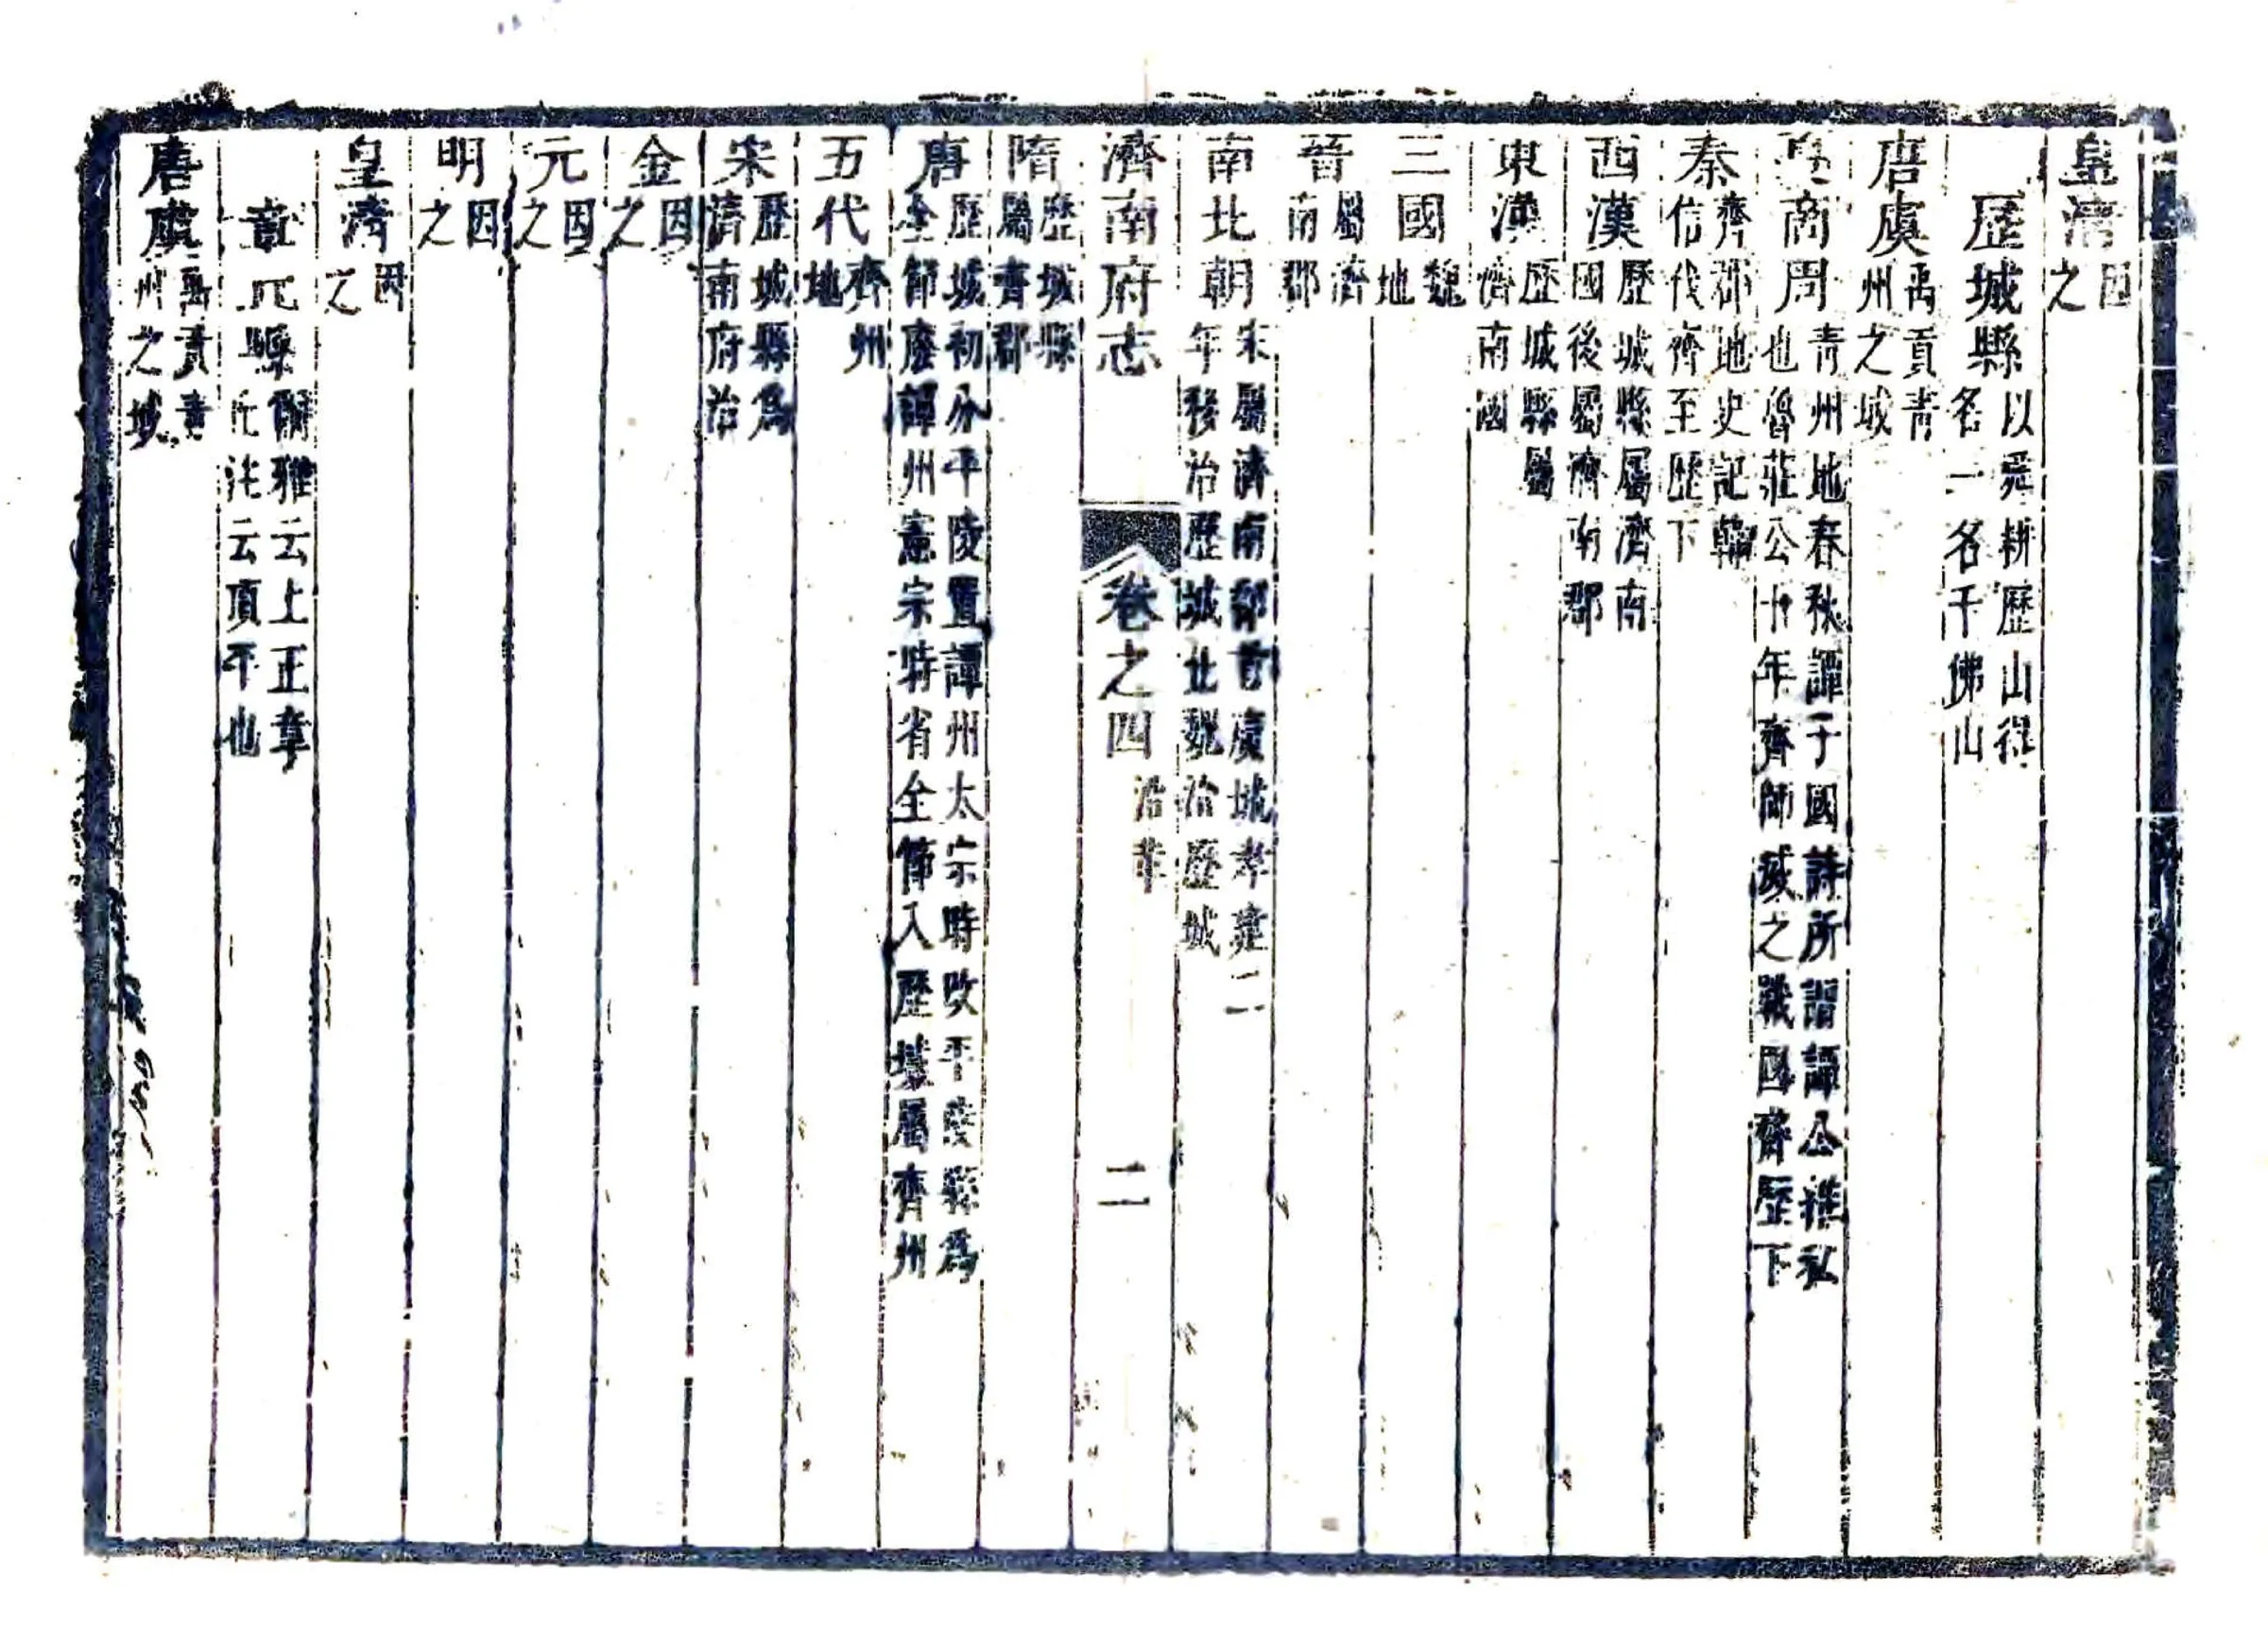 皇清因之
歷城縣以舜耕歷山得名一名千佛山
唐虞禹貢青州之域
夏商周青州地春秋譚子國詩所謂譚公維私也魯莊公十年齊師滅之戰國齊歷下
秦齊郡地史記韓信伐齊至歷下
西漢歷城縣屬濟南國後屬濟南郡
東漢歷城縣屬濟南國
三國魏地
晉屬濟南郡
南北朝宋屬濟南郡晉虞城孝建二年移治歷城北魏治歷城
濟南府志 卷之四 沿革 二
隋歷城縣屬齊郡
唐歷城初分平陵置譚州太宗時改平陵縣爲全節廢譚州憲宗時省全節入歷城屬齊州
五代齊州地
宋歷城縣爲濟南府治
金因之
元因之
明因之
皇清因之
章丘縣爾雅云上正章丘注云頂平也
唐虞禹貢青州之域